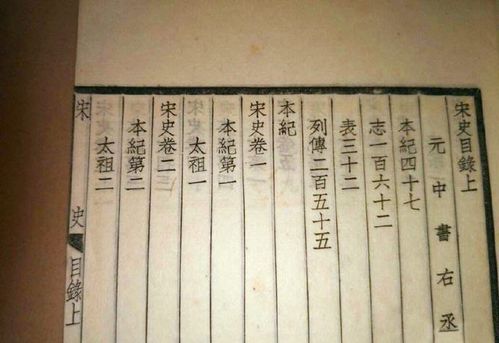 宋史目錄上
元中書右丞
本紀四十七
志一百六十二
表三十二
列傳二百五十五
本紀
宋史卷一
本紀第一
太祖一
宋史卷二
本紀第二
太祖二
宋史目錄上